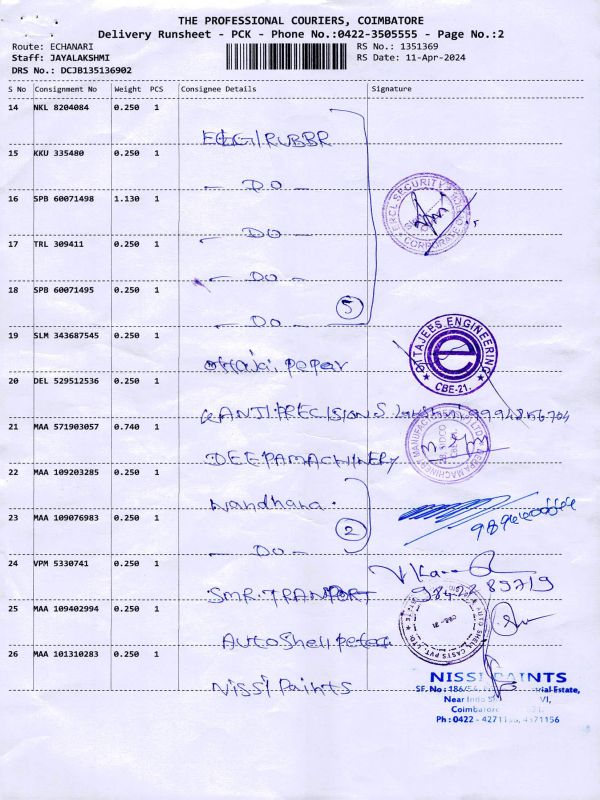 THE PROFESSIONAL COURIERS, COIMBATORE
Delivery Runsheet - PCK - Phone No.:0422-3505555 - Page No.:2
Route: ECHANARI
RS No.: 1351369
Staff: JAYALAKSHMI
RS Date: 11-Apr-2024
DRS No.: DCJB135136902
S No Consignment No Weight PCS Consignee Details Signature
14 NKL 8204084 0.250 1
ELGI RUBBR
15 KKU 335480 0.250 1
- DO -
16 SPB 60071498 1.130 1
- DO -
17 TRL 309411 0.250 1
- DO -
18 SPB 60071495 0.250 1
- DO - 5
19 SLM 343687545 0.250 1
20 DEL 529512536 0.250 1
OTTAJEES ENGINEERING
e
CBE-21.
KANJI PRECISIONS
21 MAA 571903057 0.740 1
DEEPAMACHINERY
22 MAA 109203285 0.250 1
Nandhana
23 MAA 109076983 0.250 1
- DO - 2
24 VPM 5330741 0.250 1
SMR. TRANPORT
25 MAA 109402994 0.250 1
Autoshell
26 MAA 101310283 0.250 1
Nissi Paints
NISSI PAINTS
SF. No : 186/5A
Near Indo
Coimbatore
Ph : 0422 - 4271156, 4371156